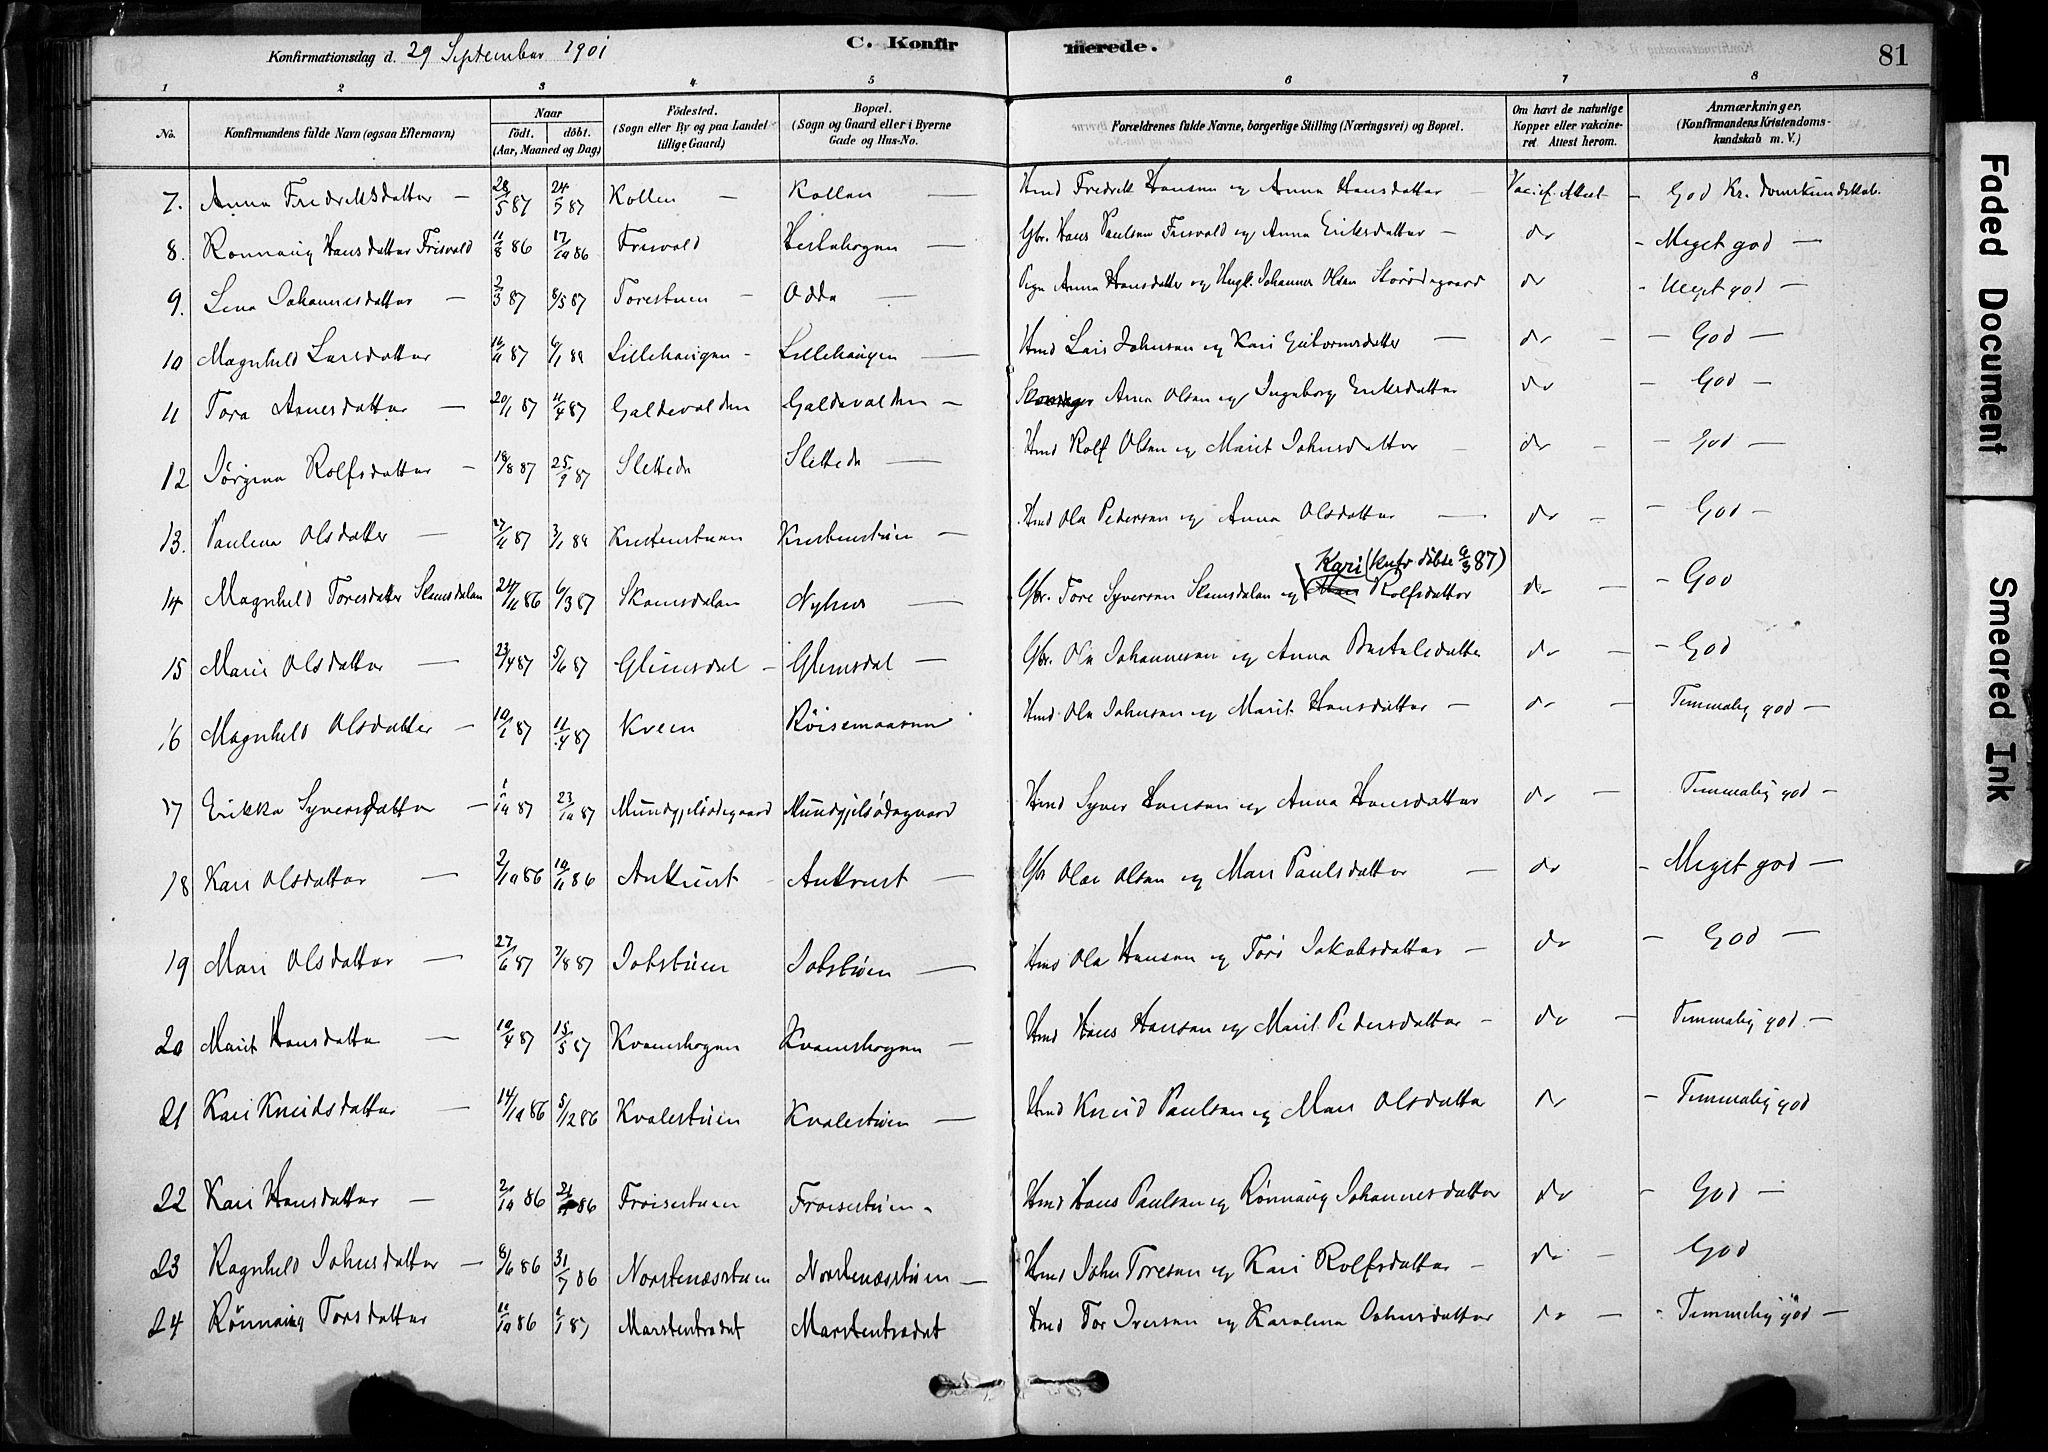 Konfirmationsdag d. 29 September 1901 C. Konfirmerede. 81
1 2 3 4 5 6 7 8
No. Konfirmandens fulde Navn (ogsaa Efternavn) Naar födt. döbt. (Aar, Maaned og Dag) Födested. (Sogn eller By og paa Landet tillige Gaard) Bopæl. (Sogn og Gaard eller i Byerne Gade og Hus-No. Forældrenes fulde Navne, borgerlige Stilling (Næringsvei) og Bopæl. Om havt de naturlige Kopper eller vakcineret Attest herom. Anmærkninger. (Konfirmandens Kristendomskundskab m. V.)
7. Anna Fredriksdatter — 28/5 87 24/7 87 Kollen — Kollen — Hmd Fredrik Hansen og Anna Hansdatter — Vacif. Attest — God Kr. domskundskab.
8. Rønnaug Hansdatter Frisvold 11/8 86 17/10 86 Frisvold Gbr. Hans Paulsen Frisvold og Anna Eriksdatter — do - Meget god —
9. Lina Johannesdatter — 2/3 87 8/5 87 Torestuen — Odda — Pige Anna Hansdatter og Ungk. Johannes Olsen do - Meget god —
10 Magnhild Larsdatter 16/11 87 6/1 88 Lillehaugen - Lillehaugen — Hmd Lars Johnsen og Kari Guttormsdatter — do — — God —
11 Tora Arnesdatter — 20/1 87 11/4 87 Galdevolden Galdevolden — Arne Olsen og Ingeborg Eriksdatter do — God —
12 Jørgine Rolfsdatter — 18/8 87 25/9 87 Slettede Slettede — Hmd Rolf Olsen og Marit Johnsdatter — do — — God —
13. Pauline Olsdatter — 27/11 87 3/1 88 Kristenstuen Kristenstuen — Hmd Ola Pedersen og Anna Olsdatter — do — — God —
14 Magnhild Toresdatter Skamsdalen 24/11 86 6/3 87 Skamsdalen Nyhus — Gbr. Tore Syversen Skamsdalen og Kari (knfr døbte 6/3 87) Rolfsdatter do — — God
15 Mari Olsdatter — 23/4 87 5/6 87 Glimsdal — Glimsdal — Gbr. Ola Johannesen og Anna do — — God
16 Magnhild Olsdatter — 10/1 87 11/4 87 Kveen Röisemaasen Hmd Ola Johnsen og Marit Hansdatter — do — Temmelig god —
17 Erikka Syversdatter — 1/10 87 23/10 87 Mundgjelsödegaard Mundgjelsödegaard Hmd Syver Hansen og Anna Hansdatter do — Temmelig god —
18 Kari Olsdatter — 2/10 86 10/11 86 Ankrust Ankrust — Gbr Olav Olsen og Mari Paulsdatter — do - Meget god —
19 Mari Olsdatter — 27/6 87 7/8 87 Jobstuen Jobstuen — Hmd Ola Hansen og Torø Jakobsdatter — do — God —
20 Marit Hansdatter — 10/4 87 15/5 87 Kvamshogen Kvamshogen — Hmd Hans Hansen og Marit Pedersdatter — do — Temmelig god —
21 Kari Knudsdatter — 14/10 86 5/12 86 Kvalestuen Kvalestuen — Hmd Knud Paulsen og Mari Olsdatter do - Temmelig god
22 Kari Hansdatter — 2/10 86 Froisestuen Froisestuen - Hmd Hans Paulsen og Rönnaug Johannesdatter do - God —
23 Ragnhild Johnsdatter — 8/6 86 31/7 86 Norstenæsstuen Norstenæsstuen — Hmd John Toresen og Kari Rolfsdatter — do — God
24 Rönnaug Torsdatter 11/10 86 1/1 87 Marstentrædet Marstentrædet Hmd Tor Iversen og Karoline Johnsdatter do — - Temmelig god —
Faded Document
Smeared Ink